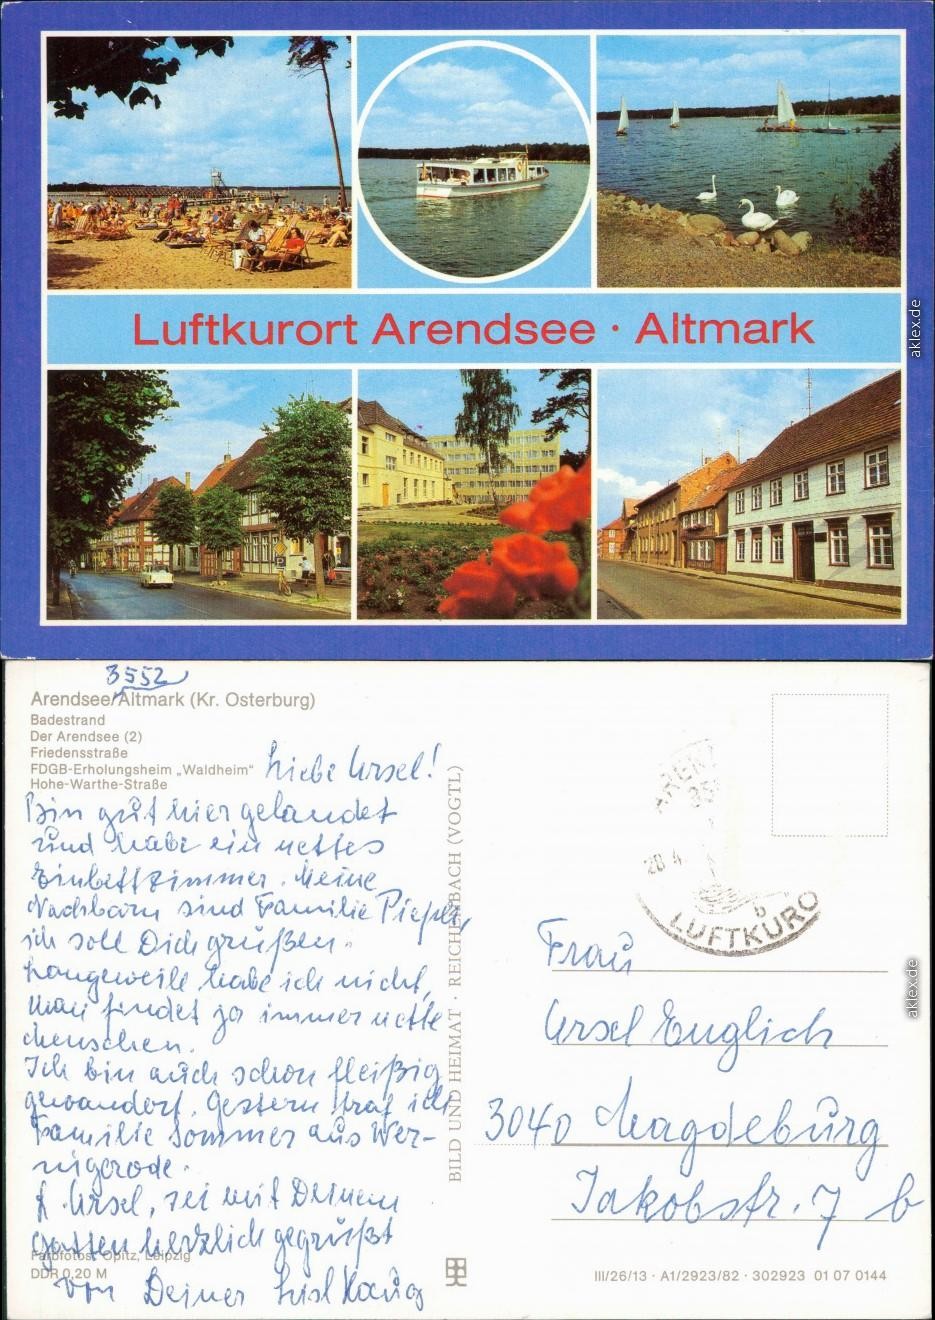 Luftkurort Arendsee · Altmark
aklex.de
3552
Arendsee/Altmark (Kr. Osterburg)
Badestrand
Der Arendsee (2)
Friedensstraße
FDGB-Erholungsheim „Waldheim“
Hohe-Warthe-Straße
Liebe Ursel!
Bin gut hier gelandet
und habe ein nettes
Einbettzimmer. Meine
Nachbarn sind Familie
ich soll Dich grüßen.
Langeweile habe ich nicht,
man findet ja immer nette
Menschen.
Ich bin auch schon fleißig
gewandert. Gestern traf ich
Familie Sommer aus Wer-
nigerode.
L. Ursel, sei mit Deinem
Gatten herzlich gegrüßt
von Deiner
Farbfotos: Opitz, Leipzig
DDR 0,20 M
BILD UND HEIMAT · REICHENBACH (VOGTL)
AREN
28.4.
b
LUFTKURO
Frau
Ursel Englich
3040 Magdeburg
Jakobstr. 7 b
III/26/13 · A1/2923/82 · 302923 01 07 0144
aklex.de